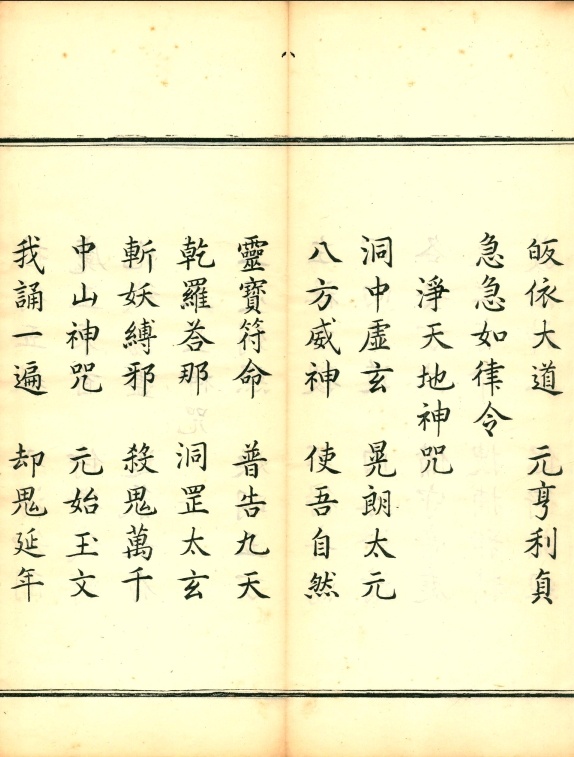 皈依大道　元亨利貞
急急如律令
淨天地神咒
洞中虛玄　晃朗太元
八方威神　使吾自然
靈寶符命　普告九天
乾羅荅那　洞罡太玄
斬妖縛邪　殺鬼萬千
中山神咒　元始玉文
我誦一遍　却鬼延年